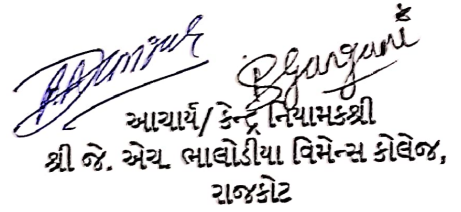 આચાર્ય/ કેન્દ્ર નિયામકશ્રી
શ્રી જે. એચ. ભાલોડીયા વિમેન્સ કોલેજ,
રાજકોટ